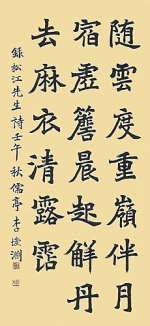 随雲度重嶺伴月
宿虛簷晨起解丹
去麻衣清露霑
錄松江先生詩壬午秋儒亭李淵